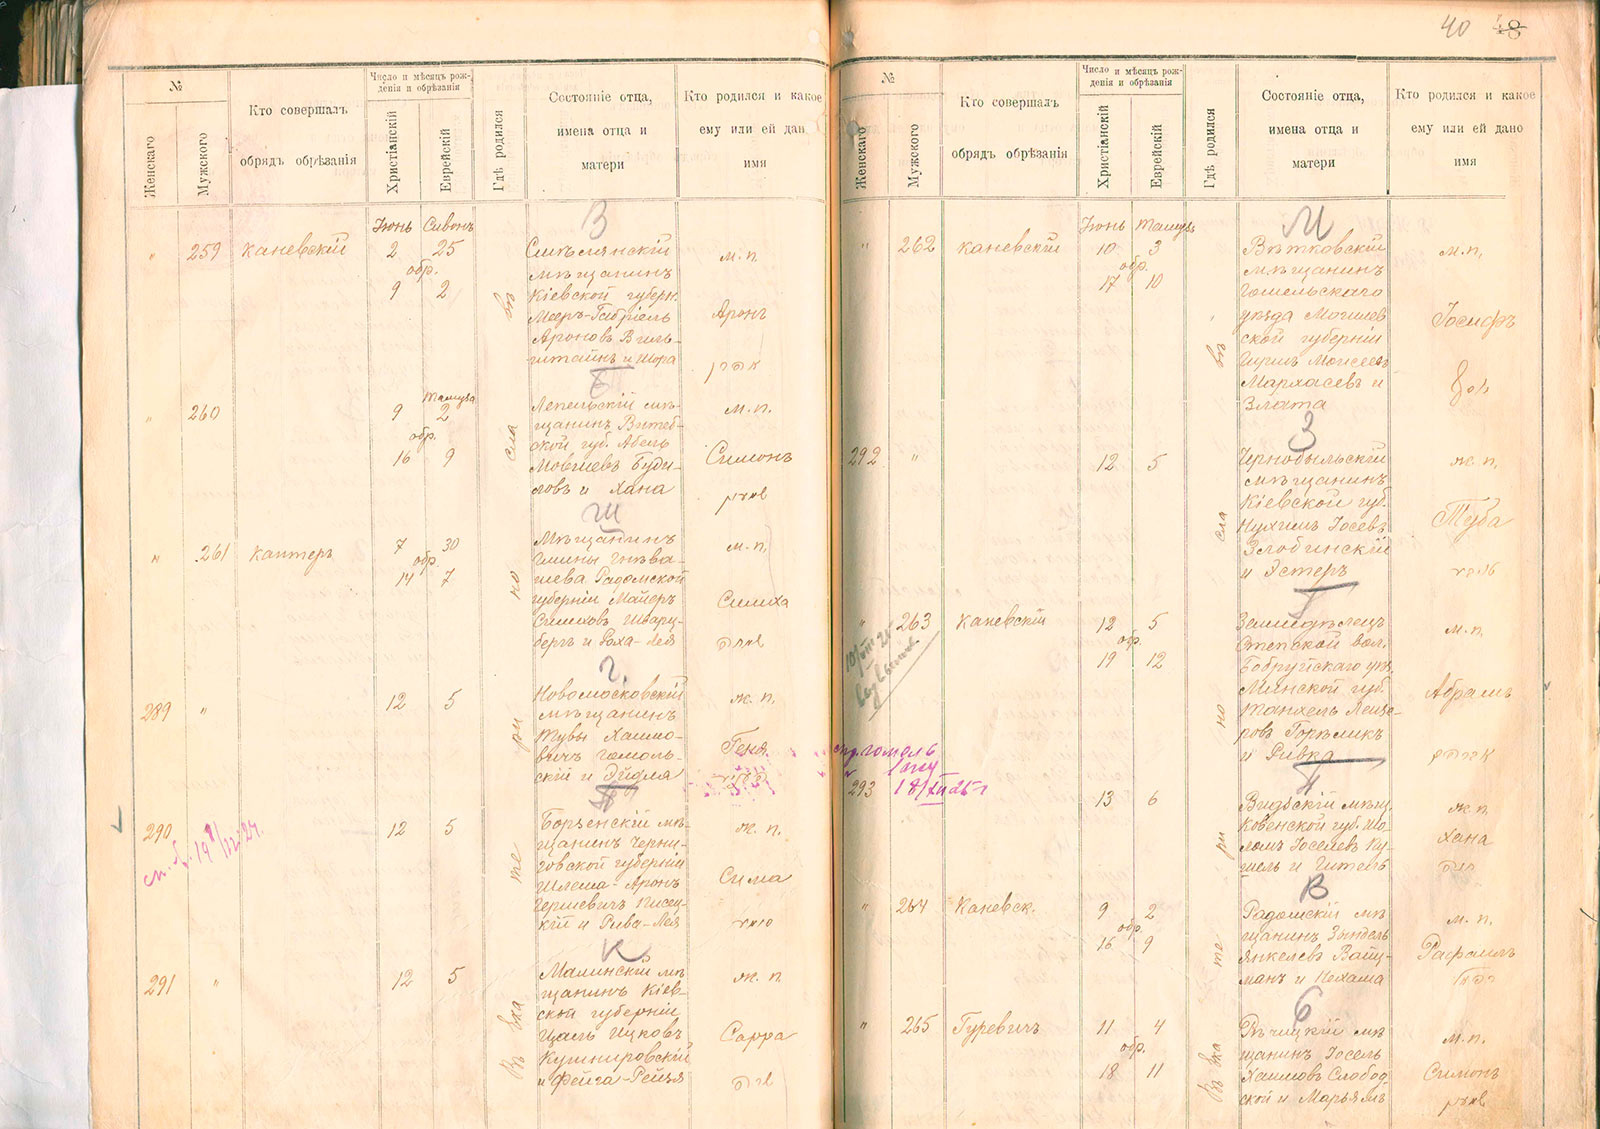 40 48
№
Женскаго
Мужского
Кто совершалъ
обрядъ обрѣзанія
Число и мѣсяцъ рож-
денія и обрѣзанія
Христіанскій
Еврейскій
Гдѣ родился
Состояніе отца,
имена отца и
матери
Кто родился и какое
ему или ей дано
имя
Іюнь Сивонъ
" 259 Каневскій 2 25
обр.
9 2
З
Смѣлянскій
мѣщанинъ
Кіевской губерн.
Мееръ-Габріель
Ароновъ Виль-
штейнъ и Шора
м. п.
Аронъ
" 260
Тамуза
9 2
обр.
16 9
Лепельскій мѣ-
щанинъ Витеб-
ской губ. Абель
Мовшевъ Буди-
ловъ и Хана
м. п.
Симонъ
שמעון
" 261 Кантеръ 7 30
обр.
14 7
Ш
Мѣщанинъ
Гмины
Радомской
губерніи Майеръ
Симховъ Шварц-
бергъ и Роха-Лея
м. п.
Симха
שמחה
289 " 12 5
Г.
Новомосковскій
мѣщанинъ
Тувы Хаимо-
вичъ Гомоль-
скій и Эйдля
ж. п.
Геня
290 12 5
Борзенскій мѣ-
щанинъ Черни-
говской губерніи
Шлема-Аронъ
Гершевичъ Писец-
кій и Рива-Лея
ж. п.
Сима
סימא
291 " 12 5
К
Малинскій мѣ-
щанинъ Кіев-
ской губерніи
Цаль Ицковъ
Кушнировскій
и Фейга-Рейзя
ж. п.
Сарра
שרה
Въ Екатеринославѣ
№
Женскаго
Мужского
Кто совершалъ
обрядъ обрѣзанія
Число и мѣсяцъ рож-
денія и обрѣзанія
Христіанскій
Еврейскій
Гдѣ родился
Состояніе отца,
имена отца и
матери
Кто родился и какое
ему или ей дано
имя
Іюнь Тамузъ
" 262 Каневскій 10 3
обр.
17 10
М
Вѣтковскій
мѣщанинъ
Гомельскаго
уѣзда Могилев
ской губерніи
Гиршъ Моисеевъ
Мархасевъ и
Злата
м. п.
Іосифъ
יוסף
292 " 12 5
З
Чернобыльскій
мѣщанинъ
Кіевской губ.
Нухимъ Іосевъ
Злобинскій
и Эстеръ
ж. п.
Туба
" 263 Каневскій 12 5
обр.
19 12
Г
Земледѣлецъ
вол.
Бобруйскаго уѣз.
Минской губ.
Танхель Лейзе-
ровъ Горѣликъ
и Ривка
м. п.
Абрамъ
אברהם
293 18/XII 25 г
13 6
Видбскій мѣщ.
Ковенской губ. Шо-
ломъ Іоселевъ Ку-
шель и Гитель
ж. п.
Хана
חנה
" 264 Каневск. 9 2
обр.
16 9
В
Радомскій мѣ
щанинъ Зундель
Янкелевъ Вайц-
манъ и Нехама
м. п.
Рафаилъ
" 265 Гуревичъ 11 4
обр.
18 11
С
Рѣчицкій мѣ
щанинъ Іосель
Хаимовъ Слобод
ской и Марьямъ
м. п.
Симонъ
שמעון
Въ Екатеринославѣ